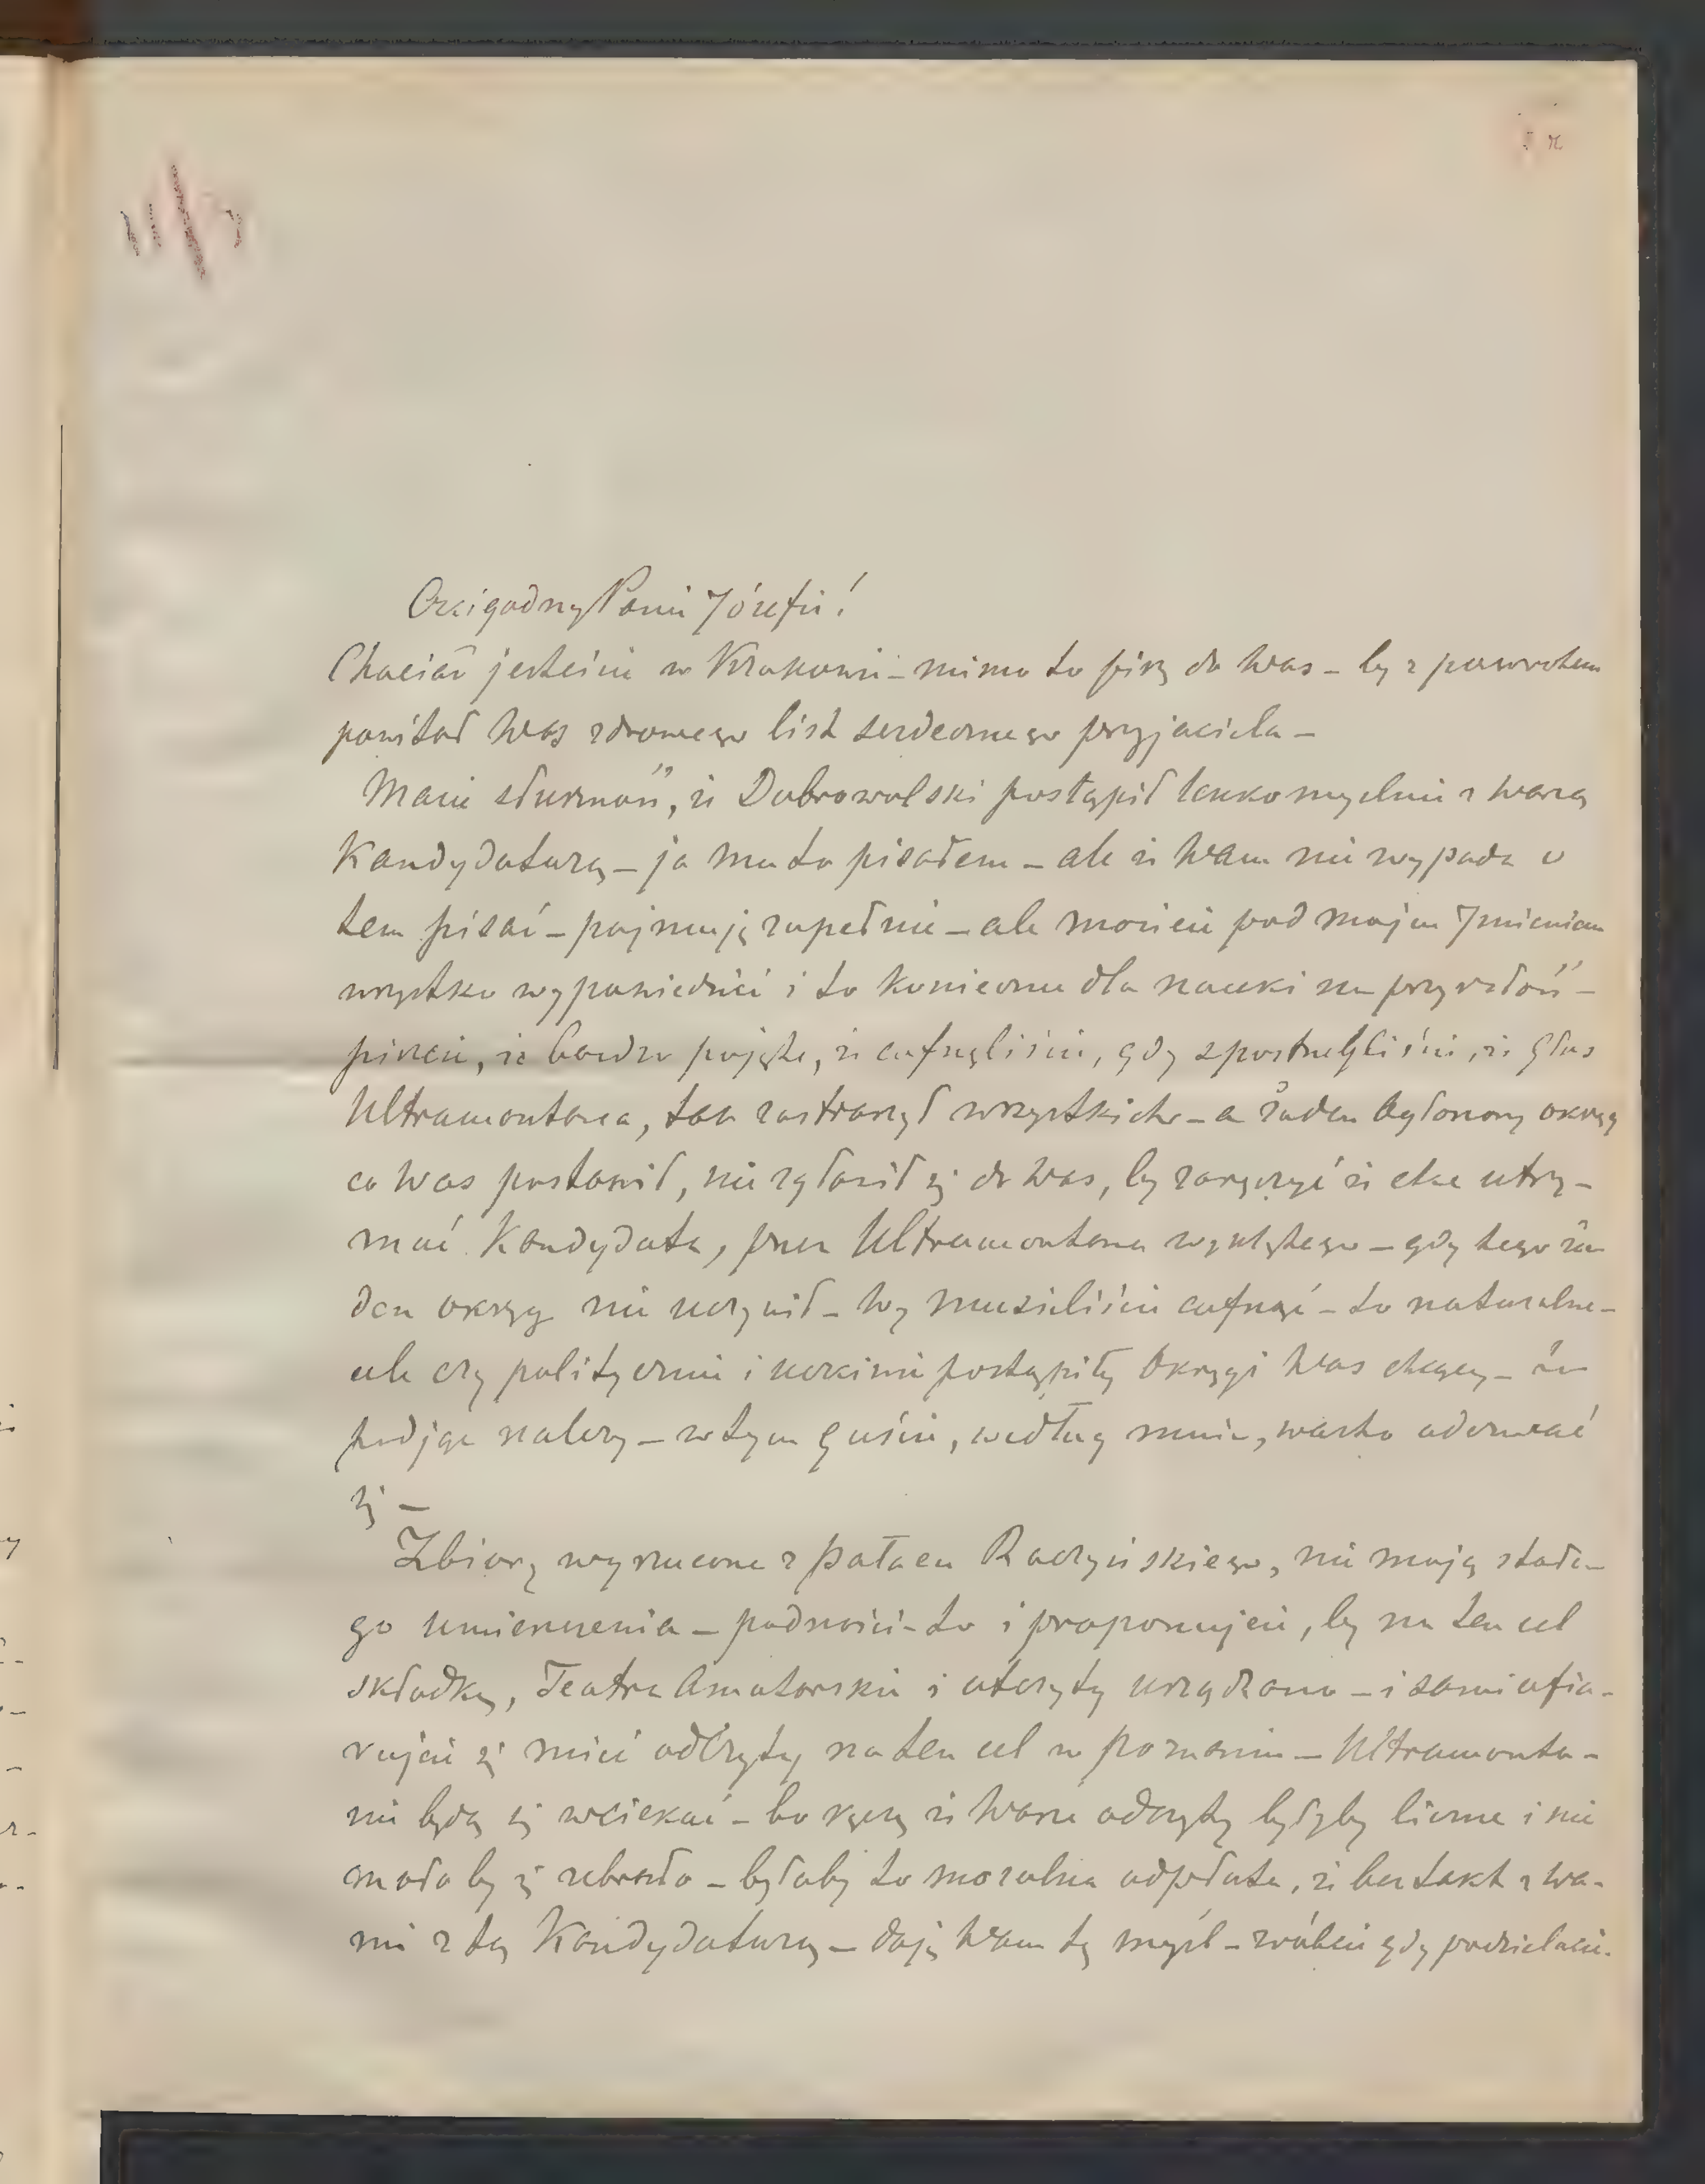 Czcigodny Panie Józefie!
Chociaż jesteście w Krakowie – mimo to piszę do Was – by z powrotem
powitał Was zdrowego list serdecznego przyjaciela –
Macie słuszność, że Dobrowolski postąpił lekkomyślnie z Waszą
Kandydaturą – ja mu to pisałem – ale że Wam nie wypada o
tem pisać – pojmuję zupełnie – ale możecie pod mojem Imieniem
wszystko wypowiedzieć i to konieczne dla nauki na przyszłość –
piszcie, że bardzo pojęte, że cofnęliście, gdy spostrzegliście, że głos
Ultramontana, tak zastraszył wszystkich – a żaden okręg
co Was postawił, nie zgłosił się do Was, by zaręczyć że chce utrzy-
mać Kandydata, przez Ultramontana wyklętego – gdy tego ża
den okręg nie uczynił – Wy musieliście cofnąć – to naturalne –
ale czy politycznie i uczciwie postąpiły Okręgi Was chcący –
podjąć należy – w tym guście, według mnie, warto odezwać
się –
Zbiory wyrzucone z pałacu Raczyńskiego, nie mają stałe-
go umieszczenia – podnoście to i proponujcie, by na ten cel
składkę, Teatra Amatorskie i odczyty urządzono – i sami ofia-
rujcie się mieć odczyty na ten cel w Poznaniu – Ultramonta-
nie będą się wściekać – bo ręczę że Wasze odczyty byłyby liczne i nie
mało by się zebrało – byłaby to moralna odpłata, że bez takt z Wa-
mi z tą Kandydaturą – daję Wam tę myśl – zróbcie gdy podzielacie.